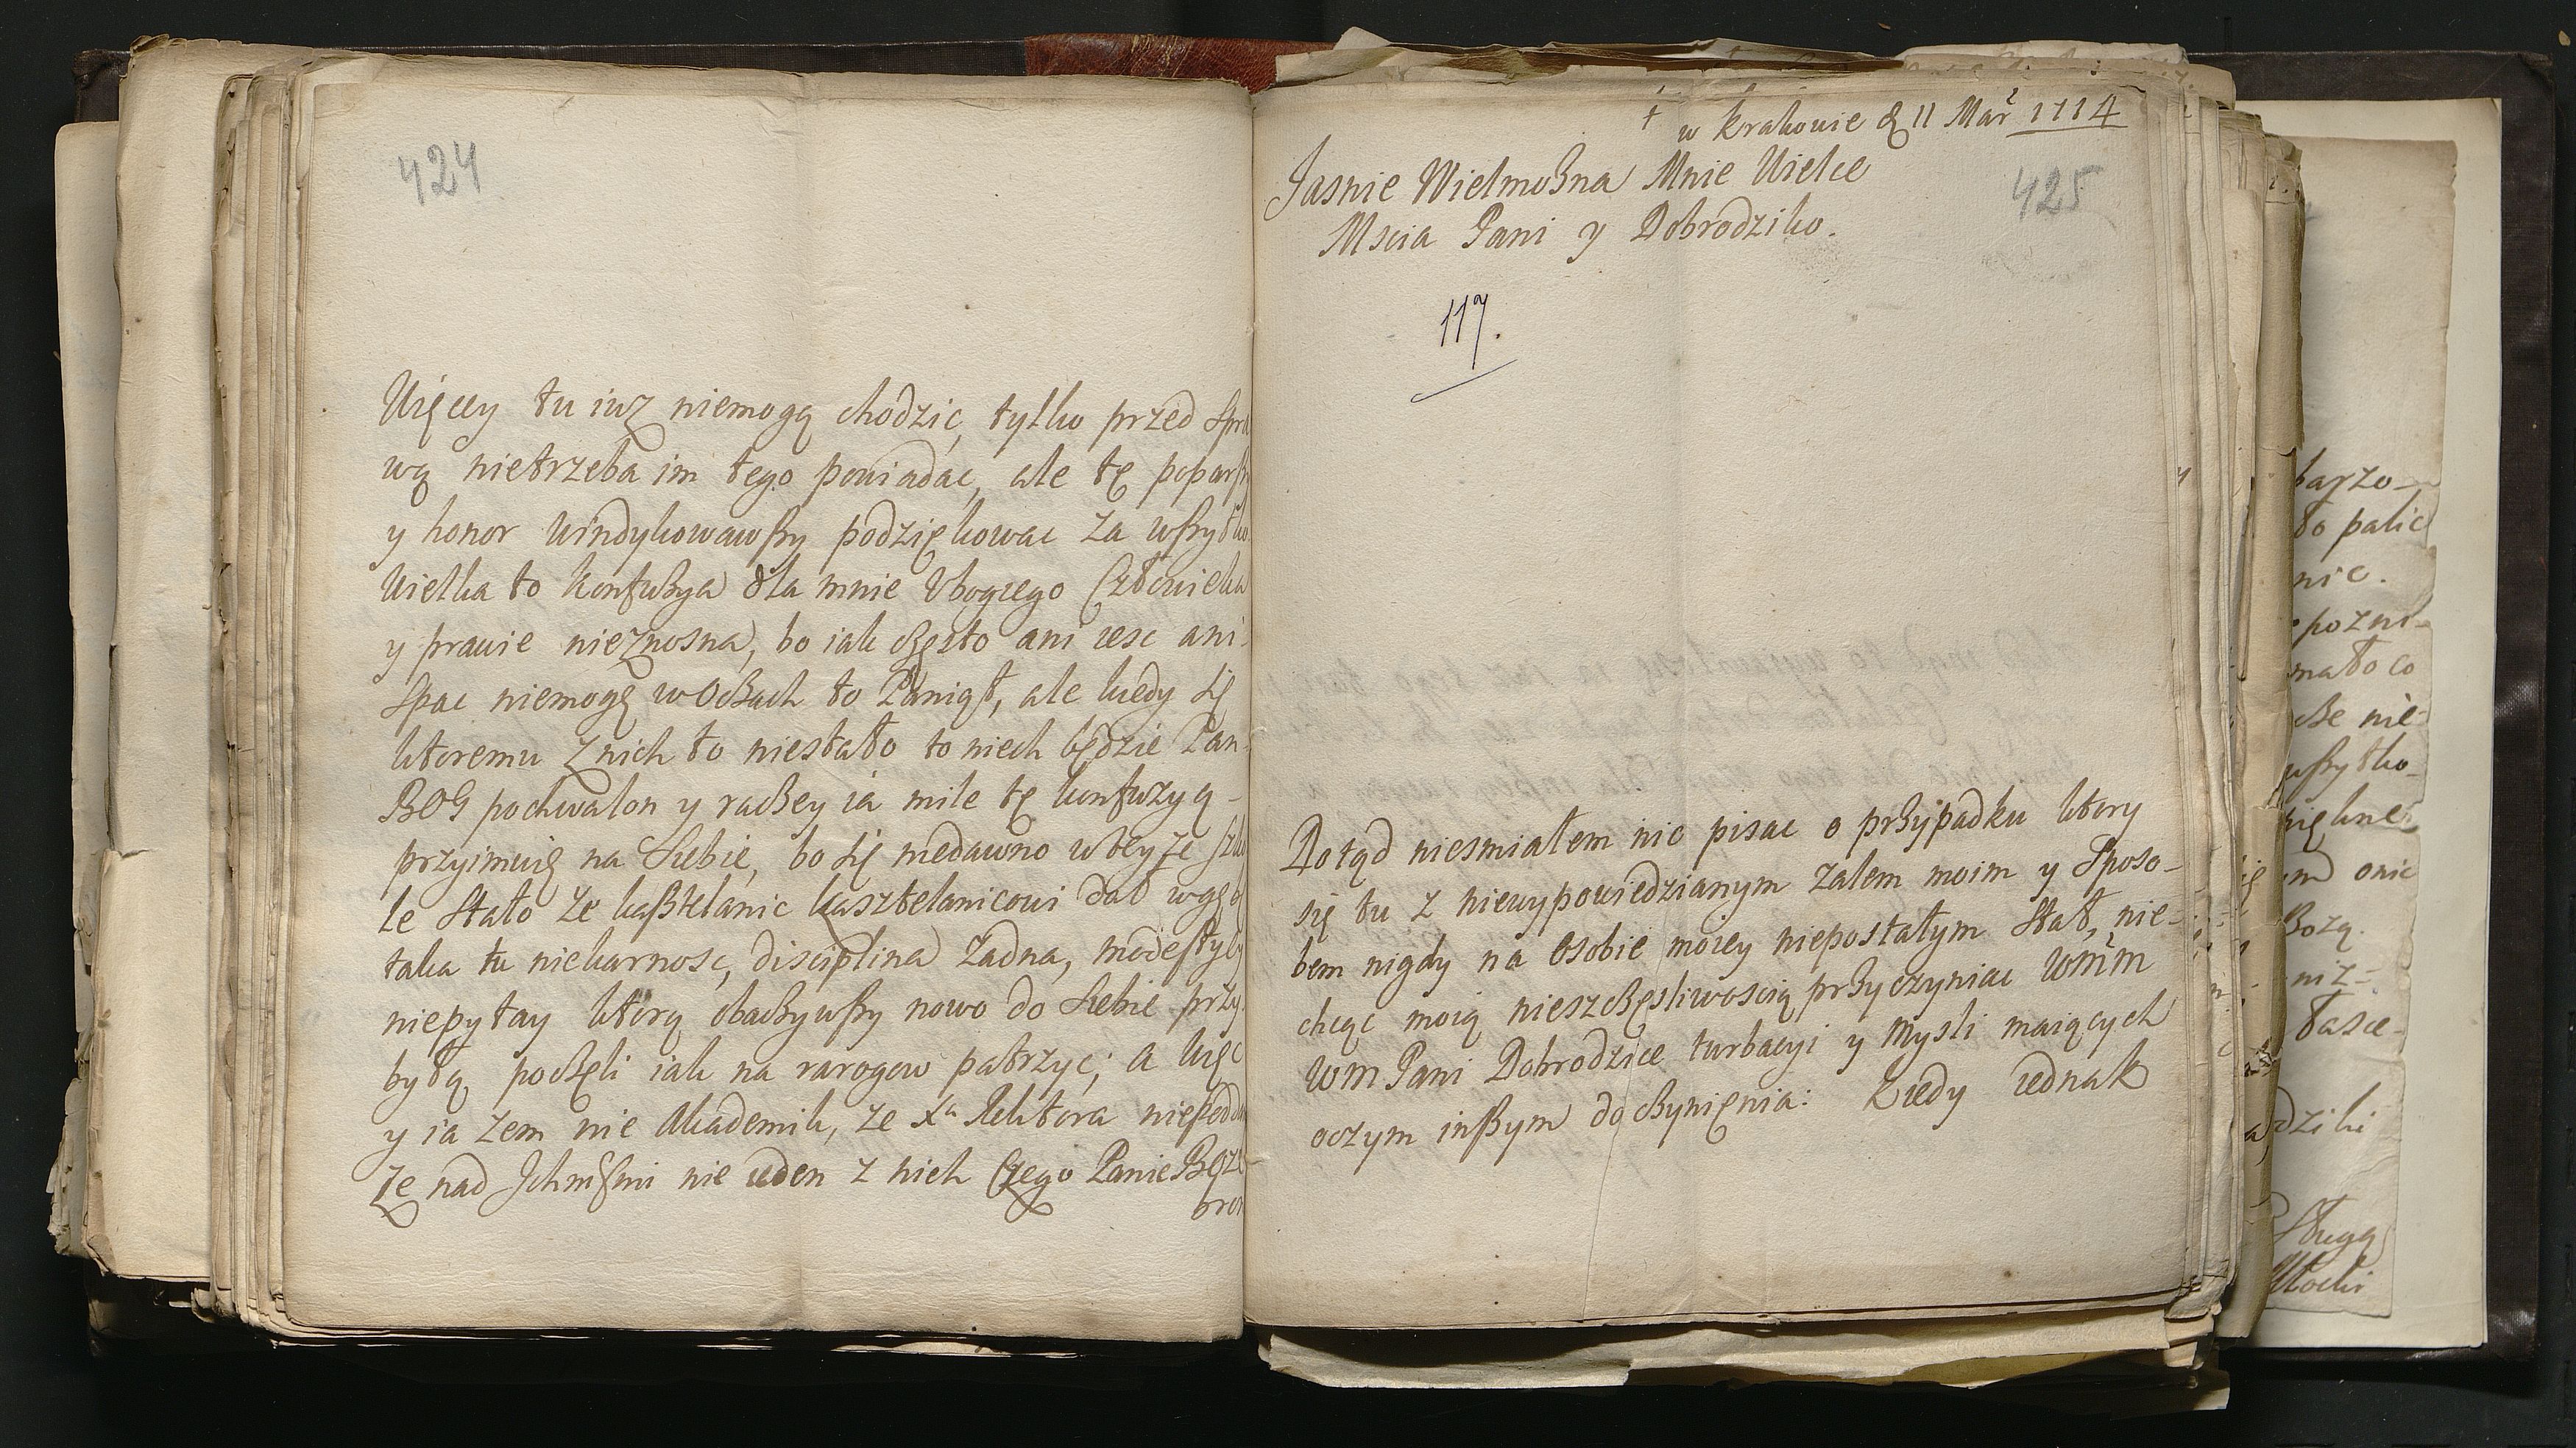 424
Więcey tu iuz niemogą chodzic, tylko przed spra
wą nietrzeba im tego powiadac, ale tę poparszy
y honor windykowawszy podziękowac za wszytko
Wielka to konfuzya dla mnie Vbogiego Człowieka
y prawie nieznosna, bo iak często ani iesc ani
Spac niemogę w oczach to Paniąt, ale kiedy się
ktoremu z nich to niestało to niech będzie Pan
BOG pochwalon y raczey ia mile tę konfuzyą-
przyimuię na Siebie, bo się niedawno w teyze szko
le Stało ze kasztelanic kasztelanicowi dał w gębę
taka tu niekarnosc, disciplina zadna, modestyey
niepytay ktorą obaczywszy nowo do Siebie przy
byłą poczęli iak na rarogow patrzyc; a więc
y ia zem nie Akademik, ze xa Rektora
ze nad Ichmsmi nie ieden z nich Czego Panie Boze
bron
† w Krakowie d 11 Mar 1714
425
Jasnie Wielmozna Mnie Wielce
Mscia Pani y Dobrodziko.
117.
Dotąd niesmiałem nic pisac o przypadku ktory
się tu z niewypowiedzianym zalem moim y Sposo-
bem nigdy na Osobie moiey niepostałym Stał, nie-
chcąc moią nieszczęsliwoscią przyczyniac WMM
WM Pani Dobrodzice turbacyi y Mysli maiących
oczym inszym do czynięnia: Kiedy iednak
barzo-
to palic
nic.
mało co
nie-
wszytko-
onic
Bozą.
niz-
łasce-
dziki
Sługą